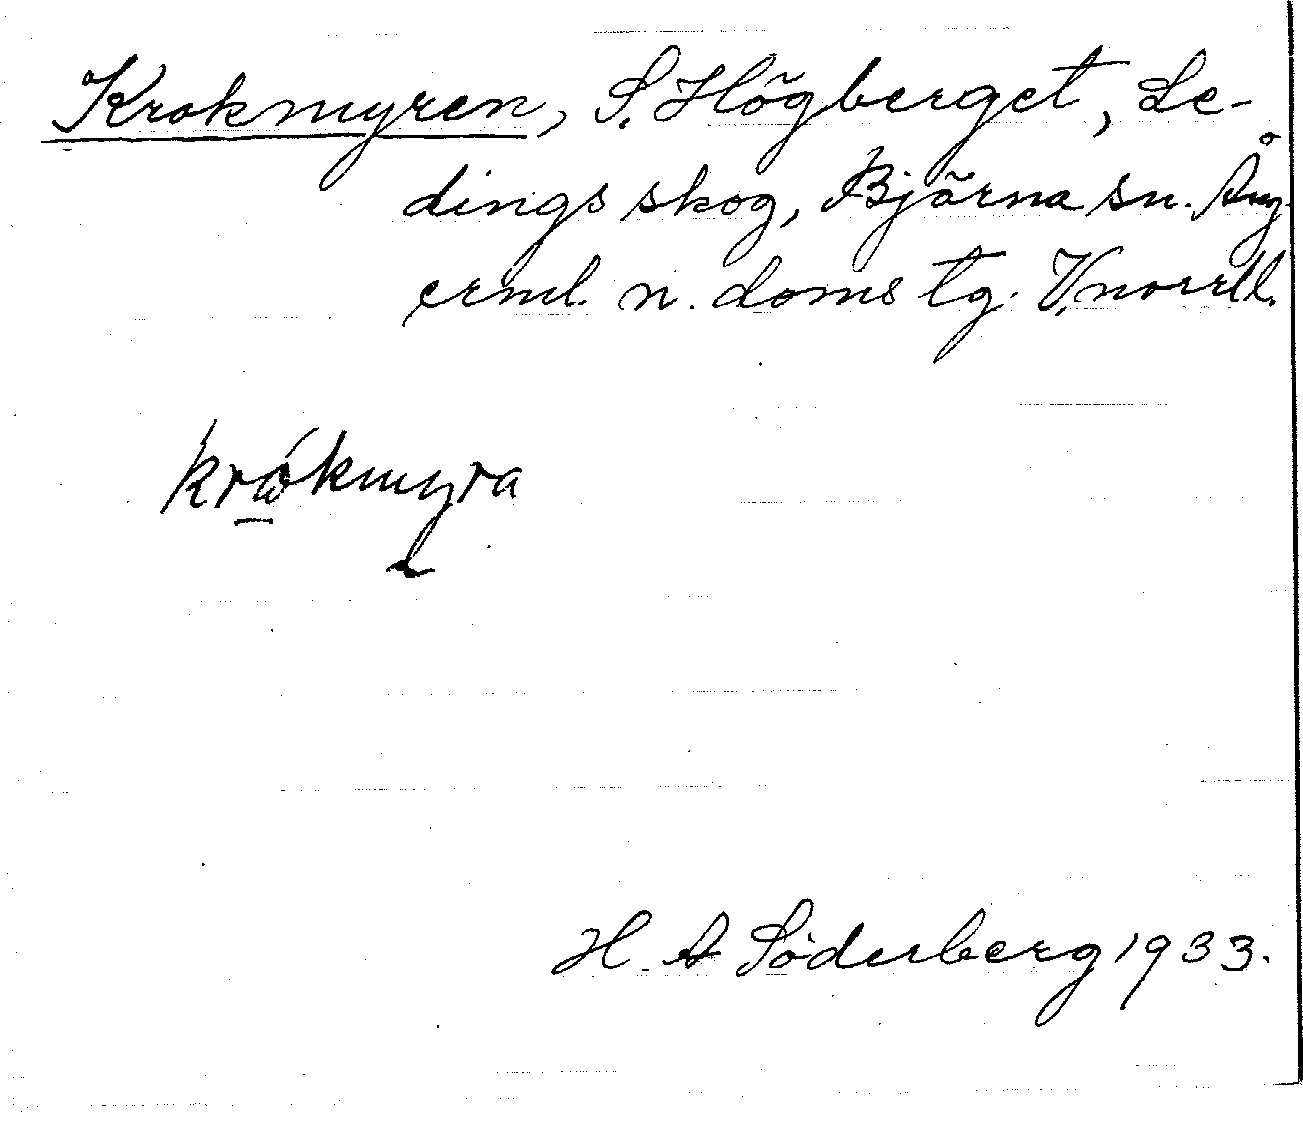 Krokmyren, S. Högberget, Le-
dings skog, Björna sn. Ång-
erml. n. doms tg. V. norrl.
krókmyra
H. A Söderberg 1933.